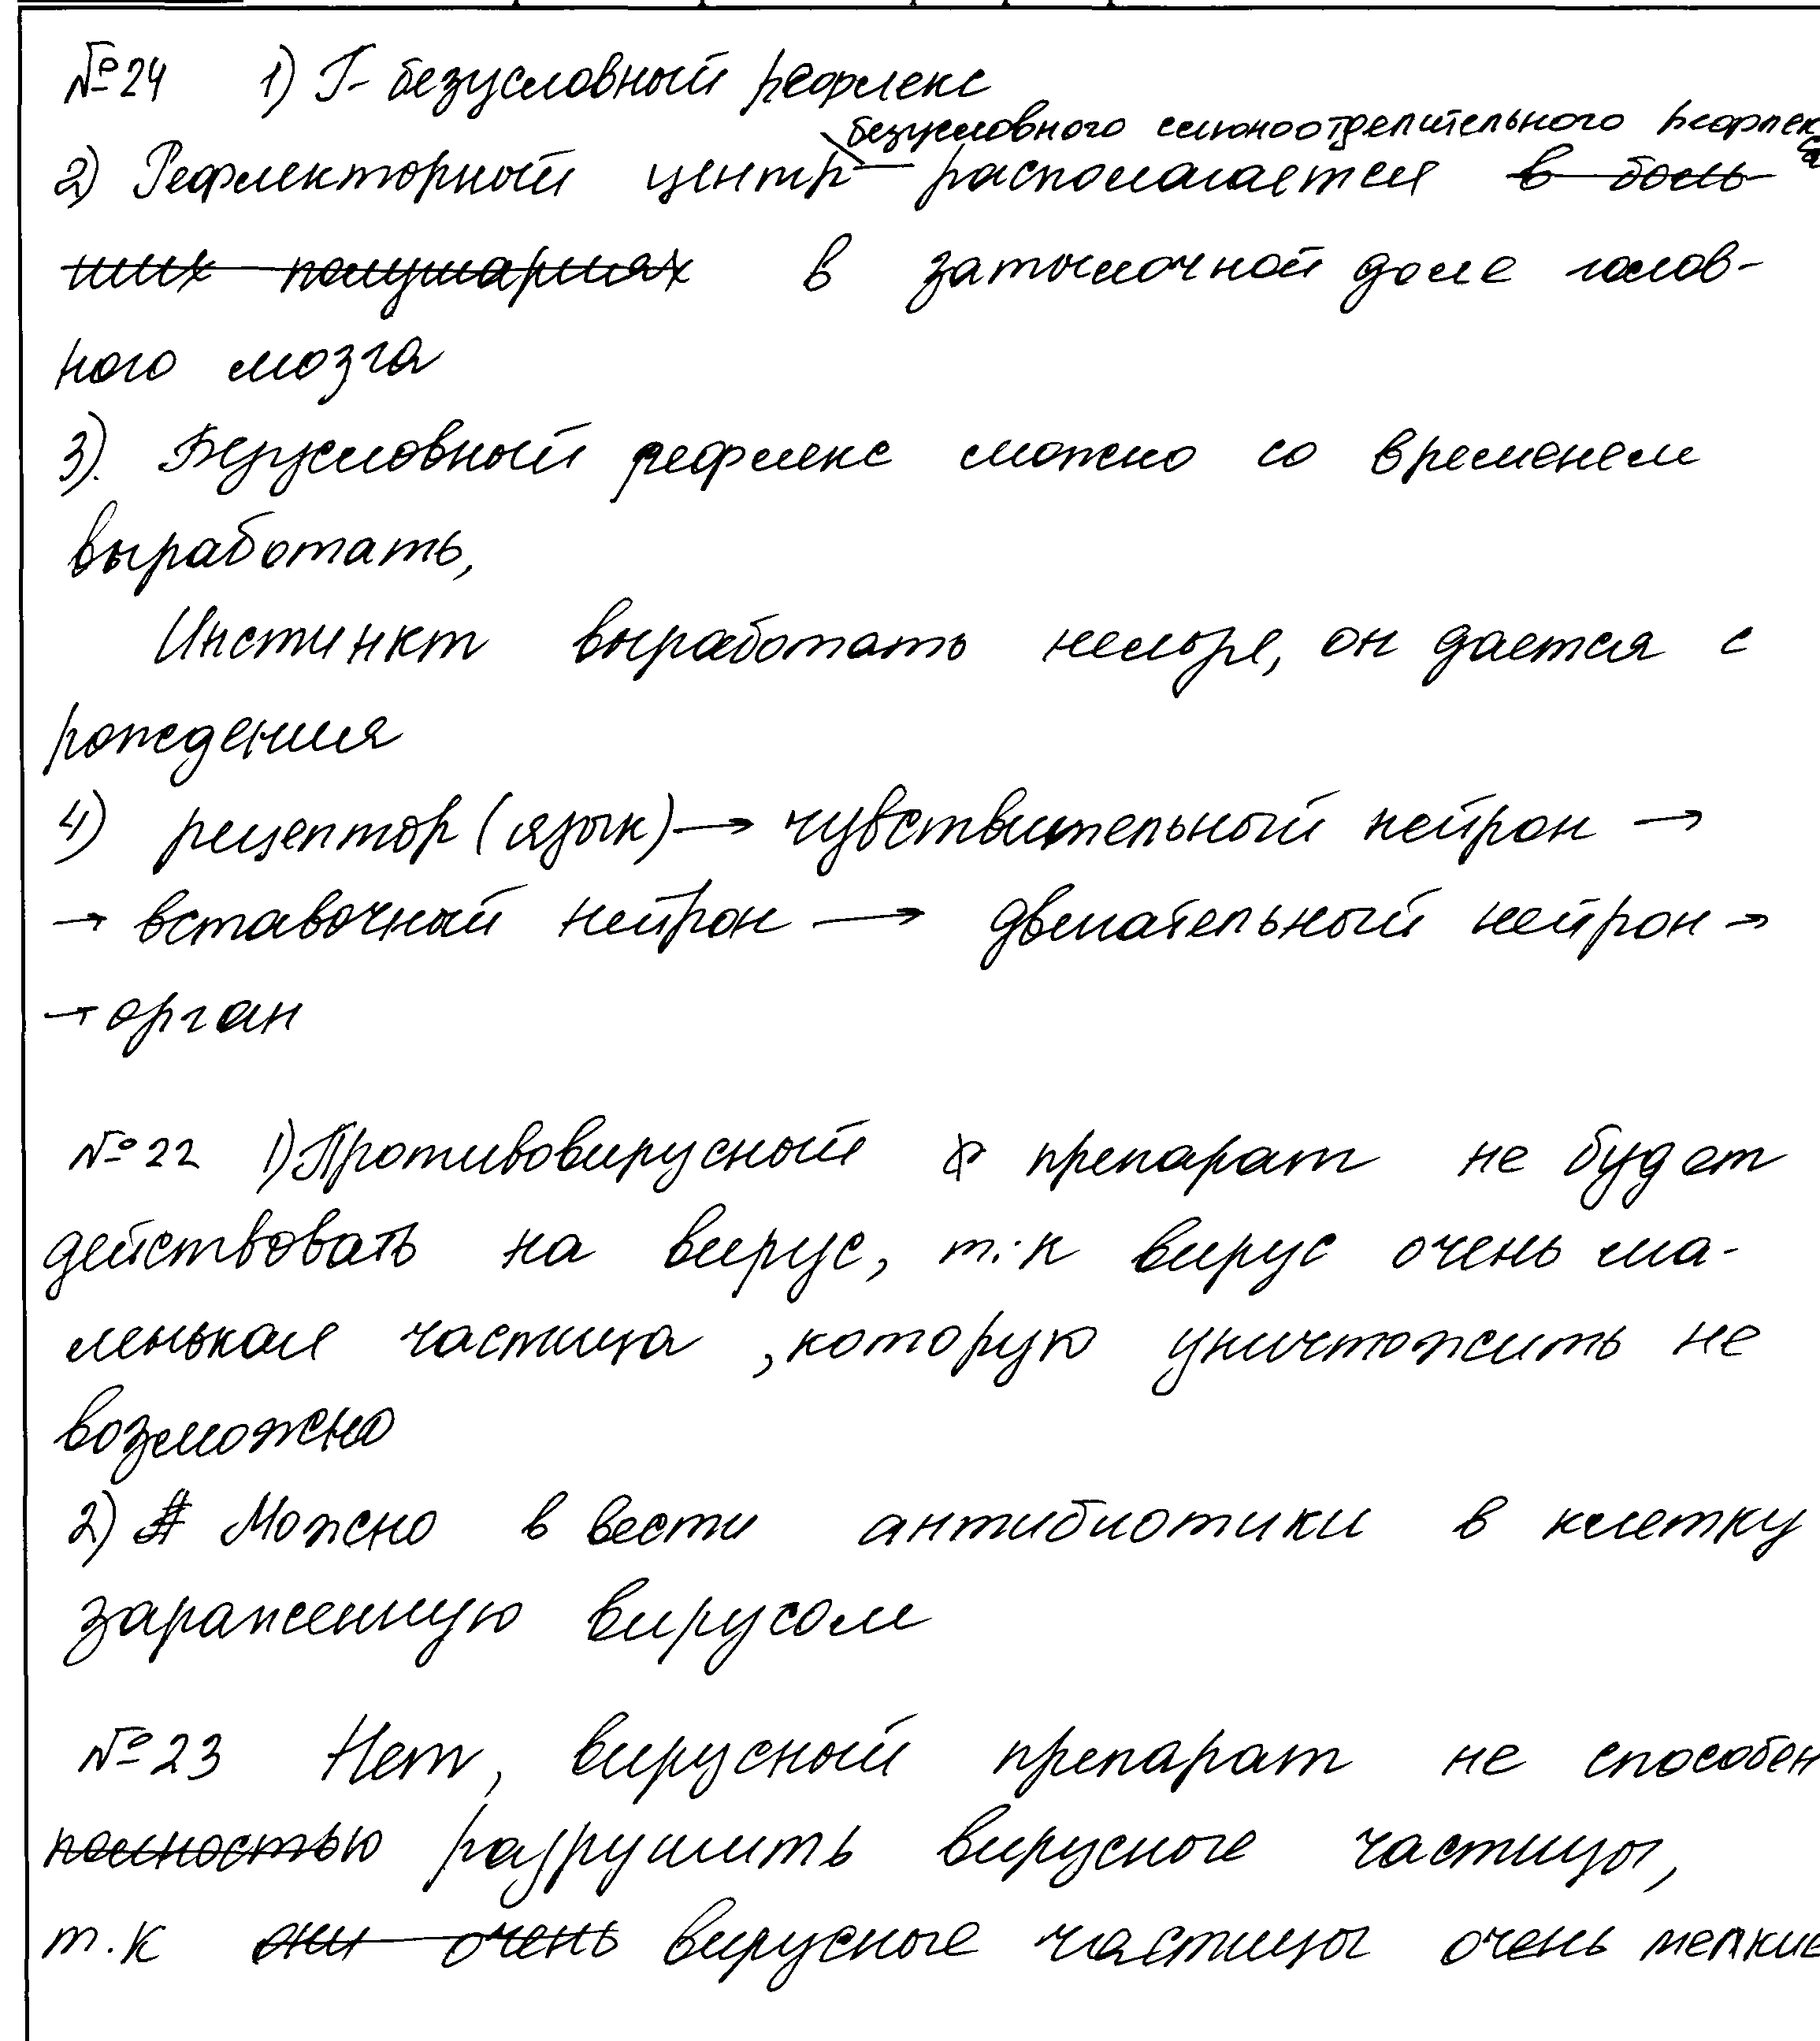 №24 1) Г- безусловный рефлекс
безусловного слюноотделительного рефлекса
2) Рефлекторный центр располагается в боль-
ших полушариях в затылочной доле голов-
ного мозга
3). Безусловный рефлекс можно со временем
выработать,
Инстинкт выработать нельзя, он дается с
рождения
4) рецептор (язык) → чувствительный нейрон →
→ вставочный нейрон → двигательный нейрон →
→ орган
№22 1) Противовирусный препарат не будет
действовать на вирус, т.к вирус очень ма-
ленькая частица, которую уничтожить не
возможно
2) Можно в вести антибиотики в клетку
зараженную вирусом
№23 Нет, вирусный препарат не способен
полностью разрушить вирусные частицы,
т.к они очень вирусные частицы очень мелкие